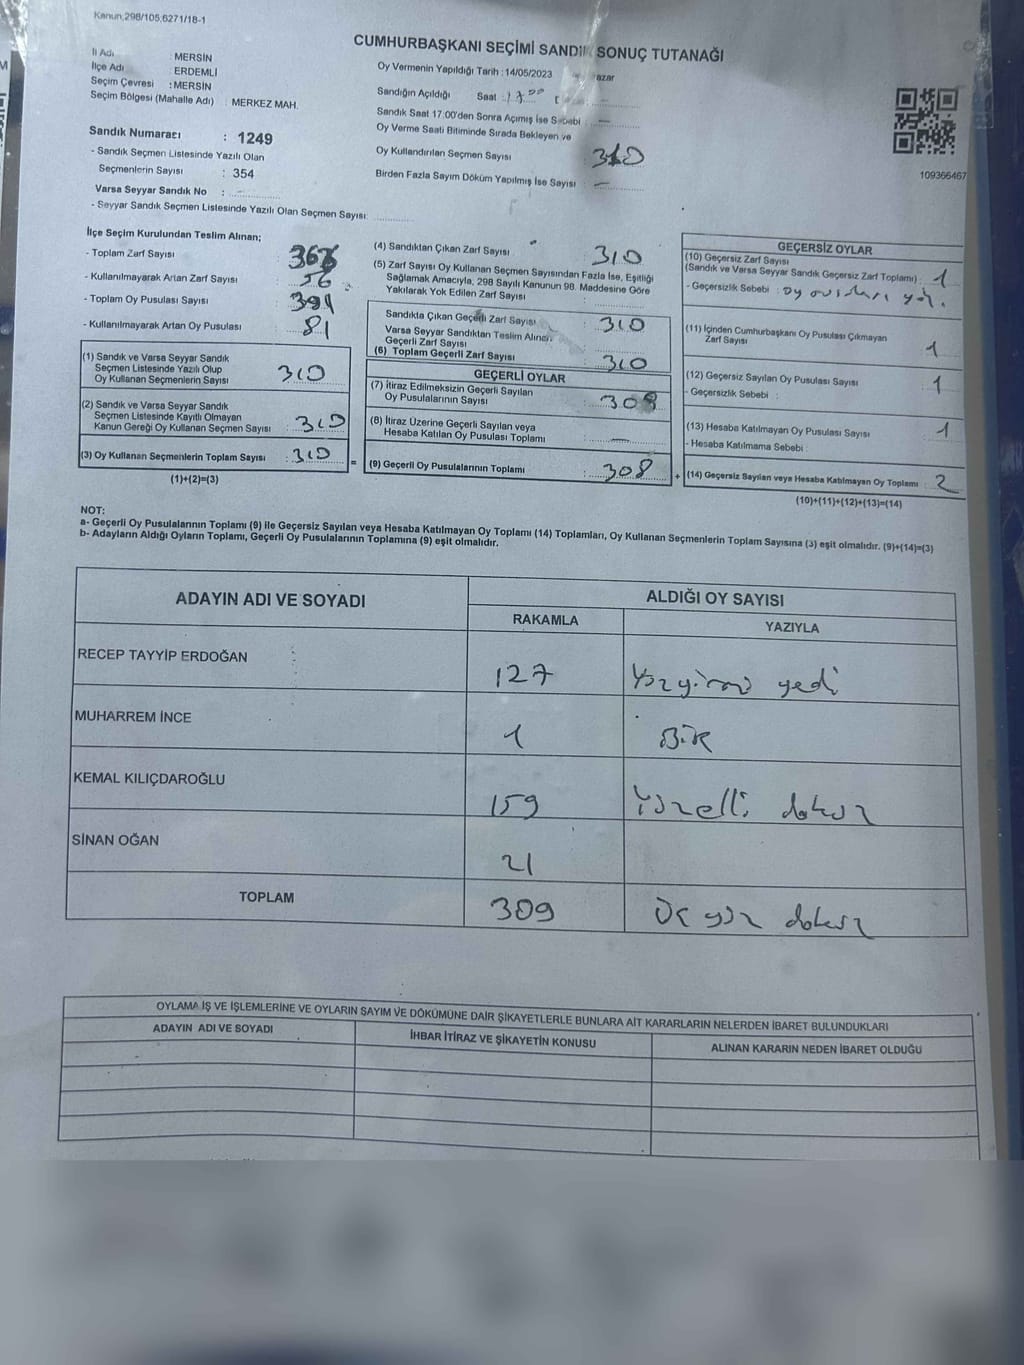 Kanun;298/105,6271/18-1
CUMHURBAŞKANI SEÇİMİ SANDIK SONUÇ TUTANAĞI
İl Adı : MERSİN
İlçe Adı : ERDEMLİ
Seçim Çevresi : MERSİN
Seçim Bölgesi (Mahalle Adı) : MERKEZ MAH.
Sandık Numarası : 1249
- Sandık Seçmen Listesinde Yazılı Olan
Seçmenlerin Sayısı : 354
Varsa Seyyar Sandık No : –
- Seyyar Sandık Seçmen Listesinde Yazılı Olan Seçmen Sayısı:
Oy Vermenin Yapıldığı Tarih : 14/05/2023 azar
Sandığın Açıldığı Saat : 17.00
Sandık Saat 17:00'den Sonra Açımış İse Sebebi : –
Oy Verme Saati Bitiminde Sırada Bekleyen ve
Oy Kullandırılan Seçmen Sayısı 310
Birden Fazla Sayım Döküm Yapılmış İse Sayısı : –
109366467
İlçe Seçim Kurulundan Teslim Alınan;
- Toplam Zarf Sayısı
- Kullanılmayarak Artan Zarf Sayısı : 56
- Toplam Oy Pusulası Sayısı : 391
- Kullanılmayarak Artan Oy Pusulası 81
(1) Sandık ve Varsa Seyyar Sandık
Seçmen Listesinde Yazılı Olup
Oy Kullanan Seçmenlerin Sayısı 310
(2) Sandık ve Varsa Seyyar Sandık
Seçmen Listesinde Kayıtlı Olmayan
Kanun Gereği Oy Kullanan Seçmen Sayısı : 310
(3) Oy Kullanan Seçmenlerin Toplam Sayısı : 310
(1)+(2)=(3)
=
(4) Sandıktan Çıkan Zarf Sayısı 310
(5) Zarf Sayısı Oy Kullanan Seçmen Sayısından Fazla İse, Eşitliği
Sağlamak Amacıyla, 298 Sayılı Kanunun 98. Maddesine Göre
Yakılarak Yok Edilen Zarf Sayısı
Sandıkta Çıkan Geçerli Zarf Sayısı : 310
Varsa Seyyar Sandıktan Teslim Alınan
Geçerli Zarf Sayısı
(6) Toplam Geçerli Zarf Sayısı : 310
GEÇERLİ OYLAR
(7) İtiraz Edilmeksizin Geçerli Sayılan
Oy Pusulalarının Sayısı : 308
(8) İtiraz Üzerine Geçerli Sayılan veya
Hesaba Katılan Oy Pusulası Toplamı : –
(9) Geçerli Oy Pusulalarının Toplamı : 308
+
GEÇERSİZ OYLAR
(10) Geçersiz Zarf Sayısı
(Sandık ve Varsa Seyyar Sandık Geçersiz Zarf Toplamı) : 1
- Geçersizlik Sebebi : oy pusulası yok.
(11) İçinden Cumhurbaşkanı Oy Pusulası Çıkmayan
Zarf Sayısı 1
(12) Geçersiz Sayılan Oy Pusulası Sayısı 1
- Geçersizlik Sebebi :
(13) Hesaba Katılmayan Oy Pusulası Sayısı 1
- Hesaba Katılmama Sebebi :
(14) Geçersiz Sayılan veya Hesaba Katılmayan Oy Toplamı : 2
(10)+(11)+(12)+(13)=(14)
NOT:
a- Geçerli Oy Pusulalarının Toplamı (9) ile Geçersiz Sayılan veya Hesaba Katılmayan Oy Toplamı (14) Toplamları, Oy Kullanan Seçmenlerin Toplam Sayısına (3) eşit olmalıdır. (9)+(14)=(3)
b- Adayların Aldığı Oyların Toplamı, Geçerli Oy Pusulalarının Toplamına (9) eşit olmalıdır.
ADAYIN ADI VE SOYADI
ALDIĞI OY SAYISI
RAKAMLA YAZIYLA
RECEP TAYYİP ERDOĞAN 127 Yüzyirmi yedi
MUHARREM İNCE 1 BiR
KEMAL KILIÇDAROĞLU 159 Yüzelli dokuz
SİNAN OĞAN 21
TOPLAM 309 üç yüz dokuz
OYLAMA İŞ VE İŞLEMLERİNE VE OYLARIN SAYIM VE DÖKÜMÜNE DAİR ŞİKAYETLERLE BUNLARA AİT KARARLARIN NELERDEN İBARET BULUNDUKLARI
ADAYIN ADI VE SOYADI İHBAR İTİRAZ VE ŞİKAYETİN KONUSU ALINAN KARARIN NEDEN İBARET OLDUĞU